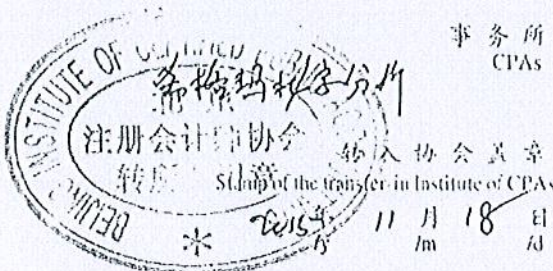 事务所
CPAs
BEIJING INSTITUTE OF CERTIFIED
希格玛北京分所
注册会计师协会
转所专用章
转入协会盖章
Stamp of the transfer-in Institute of CPAs
2015年 11月 18日
/y /m /d